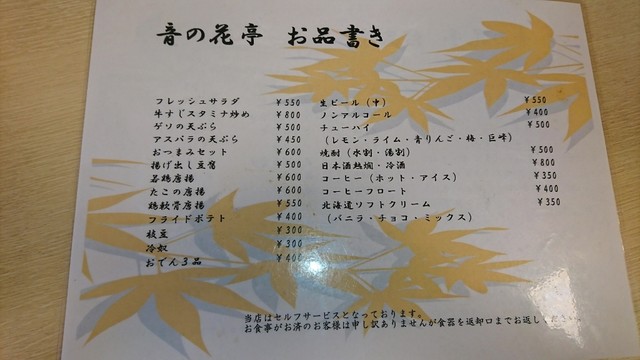 音の花亭 お品書き
フレッシュサラダ ¥550
牛すじスタミナ炒め ¥800
ゲソの天ぷら ¥500
アスパラの天ぷら ¥450
おつまみセット ¥600
揚げ出し豆腐 ¥500
若鶏唐揚 ¥600
たこの唐揚 ¥600
鶏軟骨唐揚 ¥550
フライドポテト ¥400
枝豆 ¥300
冷奴 ¥300
おでん3品 ¥400
生ビール(中) ¥550
ノンアルコール ¥400
チューハイ ¥500
(レモン・ライム・青りんご・梅・巨峰)
焼酎(水割・湯割) ¥500
日本酒熱燗・冷酒 ¥800
コーヒー(ホット・アイス) ¥350
コーヒーフロート ¥400
北海道ソフトクリーム ¥350
(バニラ・チョコ・ミックス)
当店はセルフサービスとなっております。
お食事がお済のお客様は申し訳ありませんが食器を返却口までお返しください。